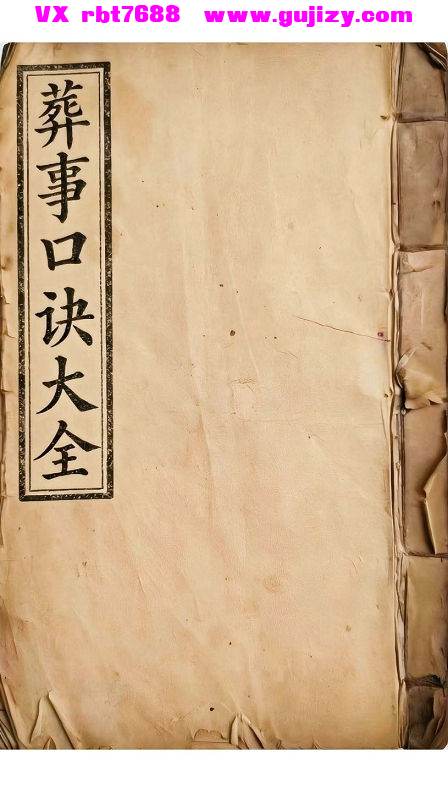 VX rbt7688 www.gujizy.com
葬事口诀大全